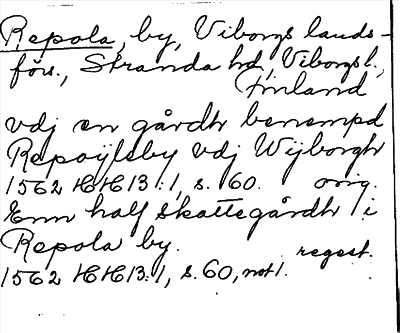 Repola, by, Viborgs lands-
förs., Stranda hd, Viborgs l.,
Finland
vdj en gårdh benempd
Repoÿlsby vdj Wijborgh
1562 HH 13:1, s. 60. orig.
Enn half skattegårdh i
Repola by. regest.
1562 HH 13:1, s. 60, not 1.